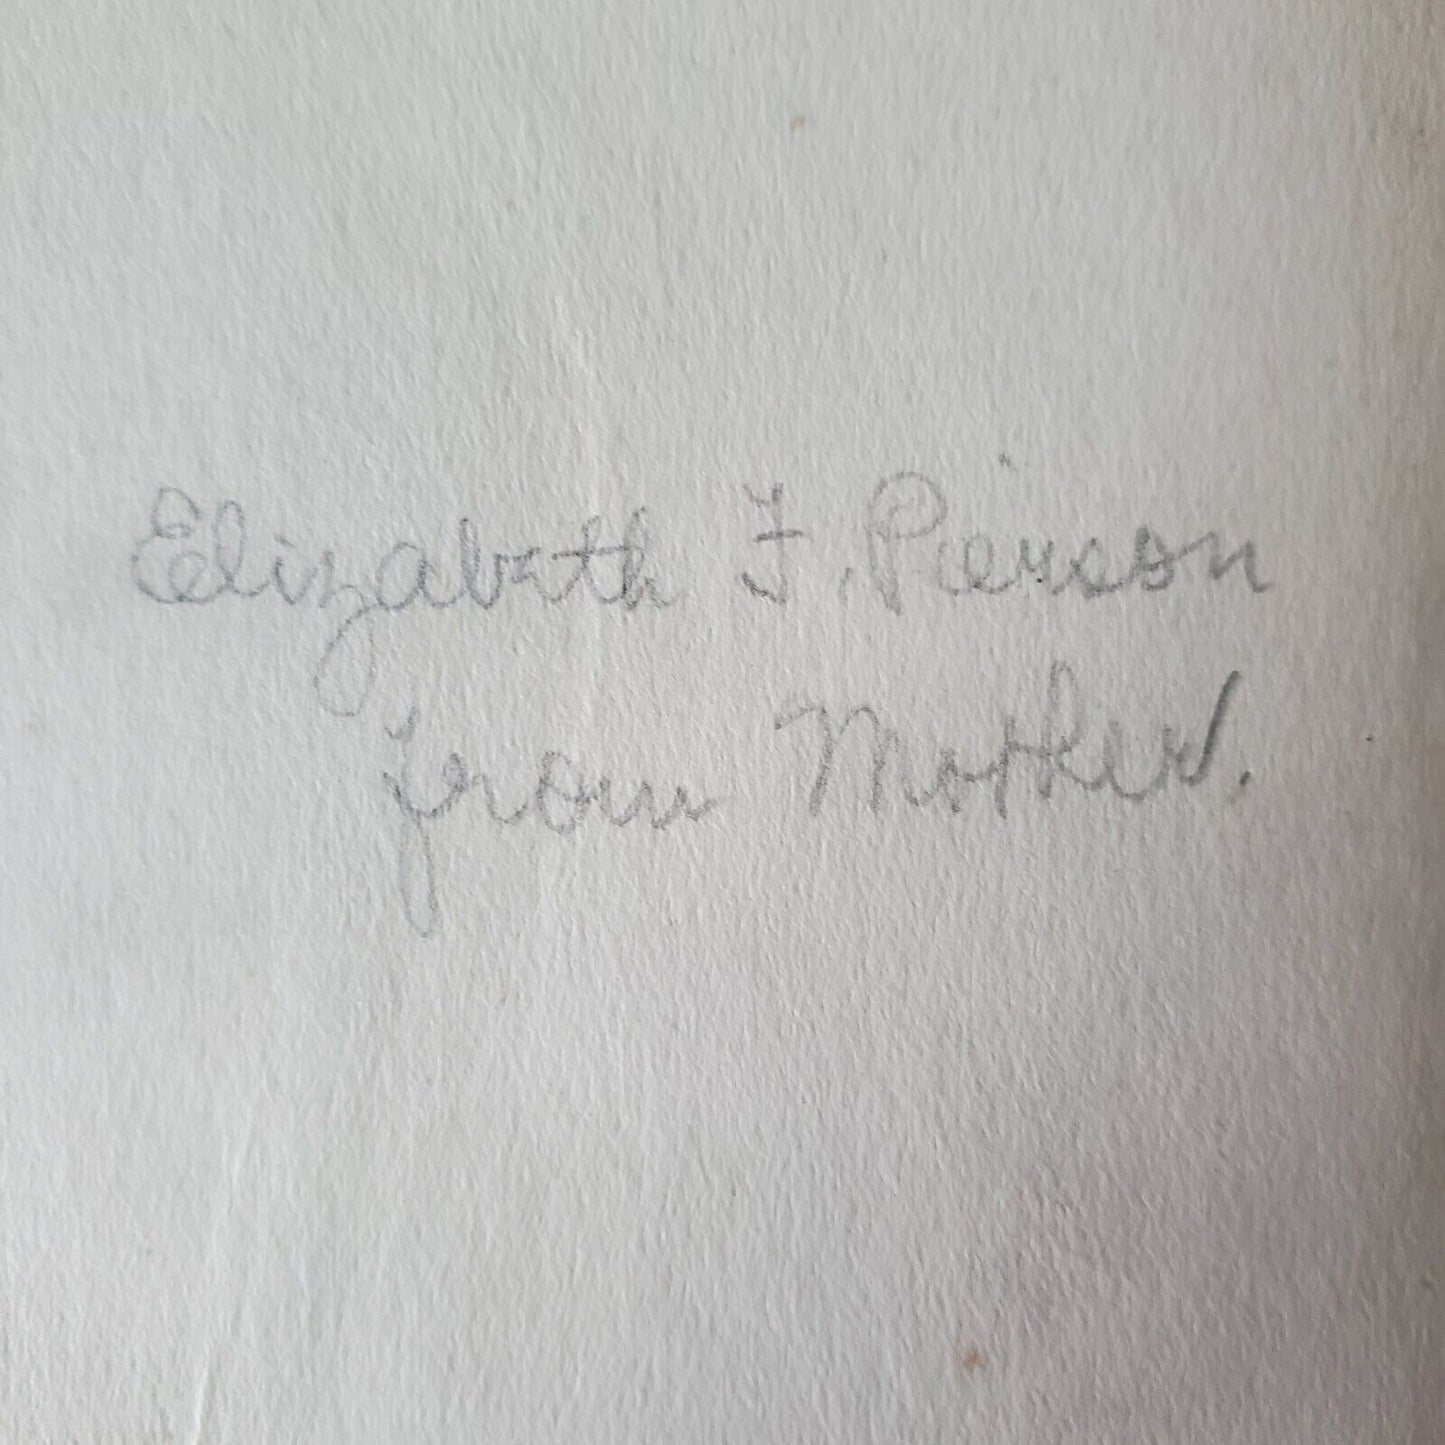 Elizabeth F. Pierson
from Mother.